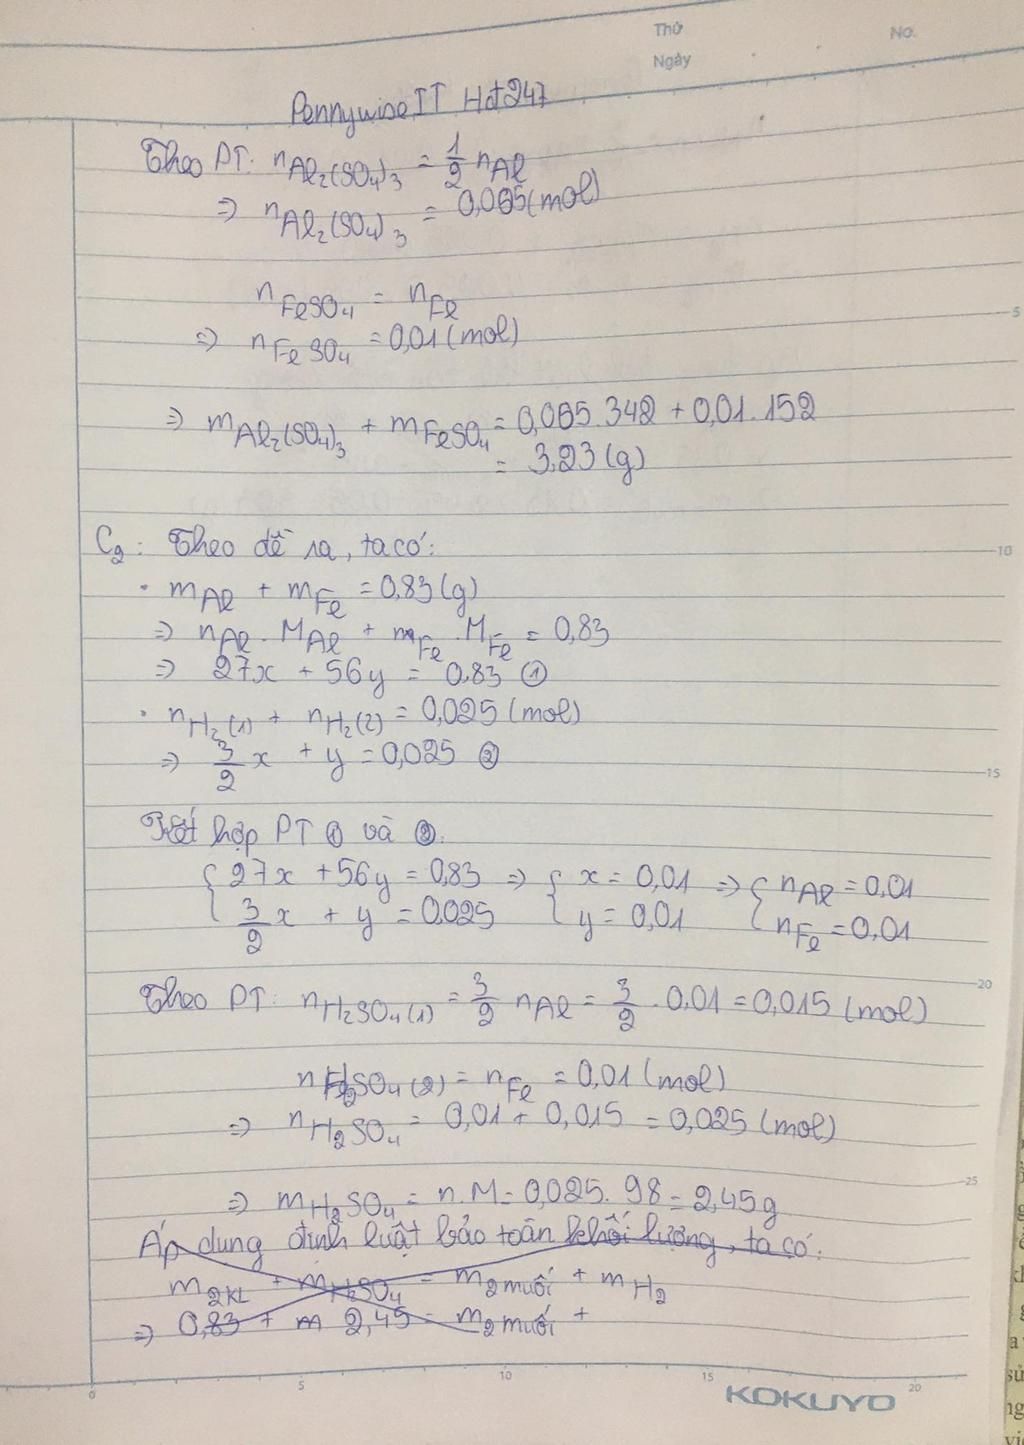 Thứ
No.
Ngày
Pennywise IT Hot247
Theo PT: n Al₂(SO₄)₃ = 1/2 n Al
=> n Al₂(SO₄)₃ = 0,005 (mol)
n FeSO₄ = n Fe
=> n FeSO₄ = 0,01 (mol)
=> m Al₂(SO₄)₃ + m FeSO₄ = 0,005.342 + 0,01.152
= 3,23 (g)
C₂: Theo đề ra, ta có:
• m Al + m Fe = 0,83 (g)
=> n Al . M Al + n Fe . M Fe = 0,83
=> 27x + 56y = 0,83 ①
• n H₂(1) + n H₂(2) = 0,025 (mol)
=> 3/2 x + y = 0,025 ②
Kết hợp PT ① và ②.
{ 27x + 56y = 0,83 => { x = 0,01 => { n Al = 0,01
3/2 x + y = 0,025 y = 0,01 n Fe = 0,01
Theo PT: n H₂SO₄(1) = 3/2 n Al = 3/2 . 0,01 = 0,015 (mol)
n H₂SO₄(2) = n Fe = 0,01 (mol)
=> n H₂SO₄ = 0,01 + 0,015 = 0,025 (mol)
=> m H₂SO₄ = n.M = 0,025.98 = 2,45g
Áp dụng định luật bảo toàn khối lượng, ta có:
m 2KL + m H₂SO₄ = m 2 muối + m H₂
=> 0,83 + m 2,45 = m 2 muối +
5
10
15
20
25
0
5
10
15
20
KOKUYO